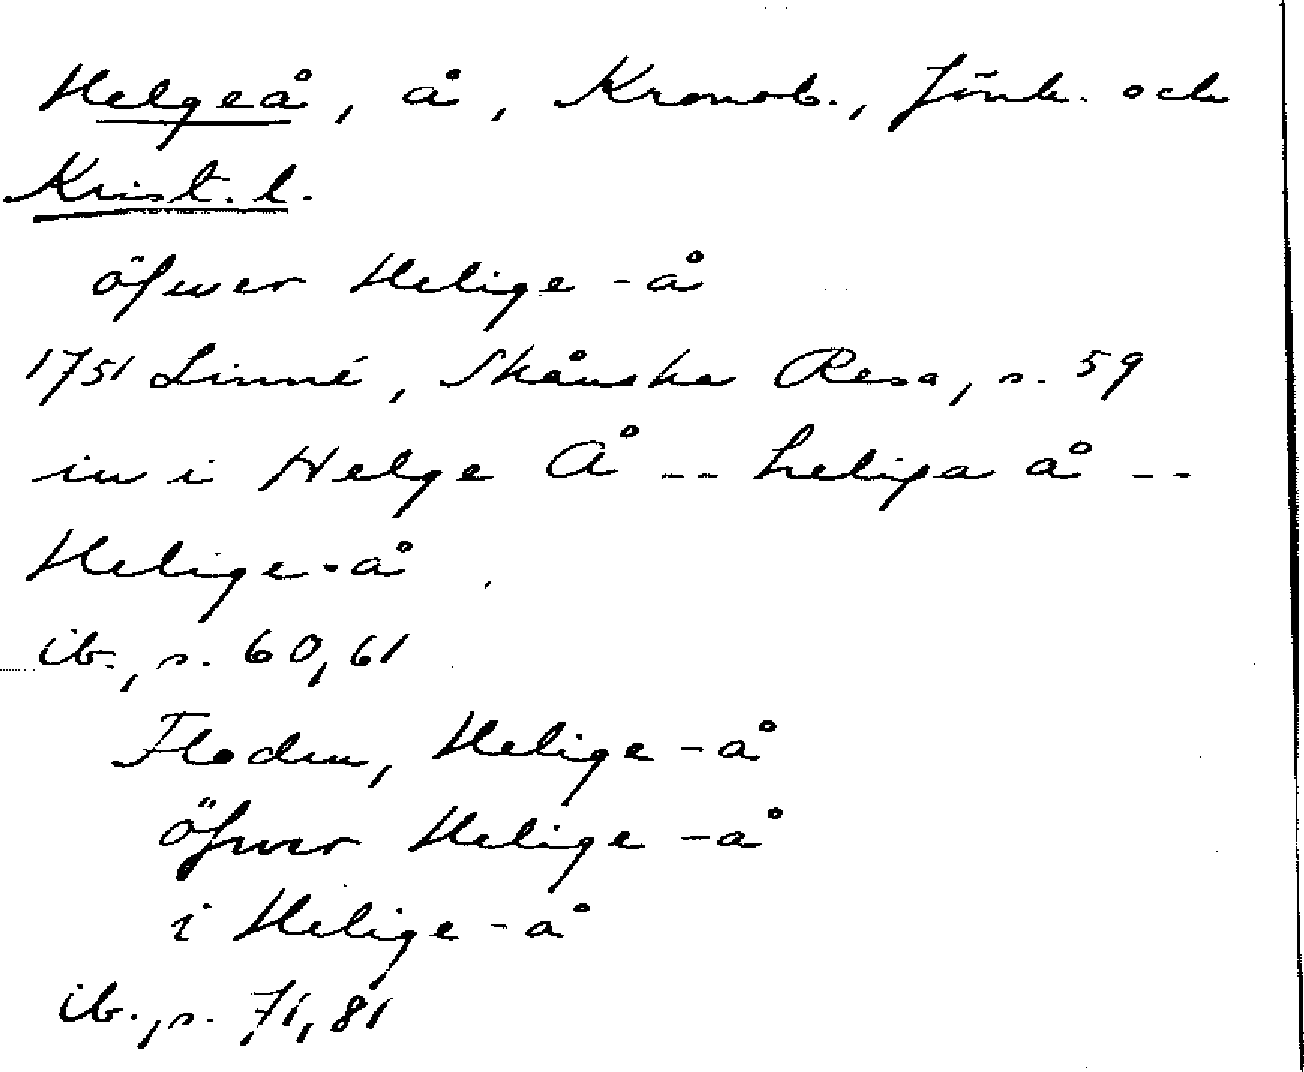 Helgeå, å, Kronob., Jönk. och
Krist. l.
öfwer Helige-å
1751 Linné, Skånska Resa, s. 59
in i Helge Å -- heliga å --
Helige-å
ib., s. 60, 61
Floden, Helige-å
öfwer Helige-å
i Helige-å
ib., s. 71, 81